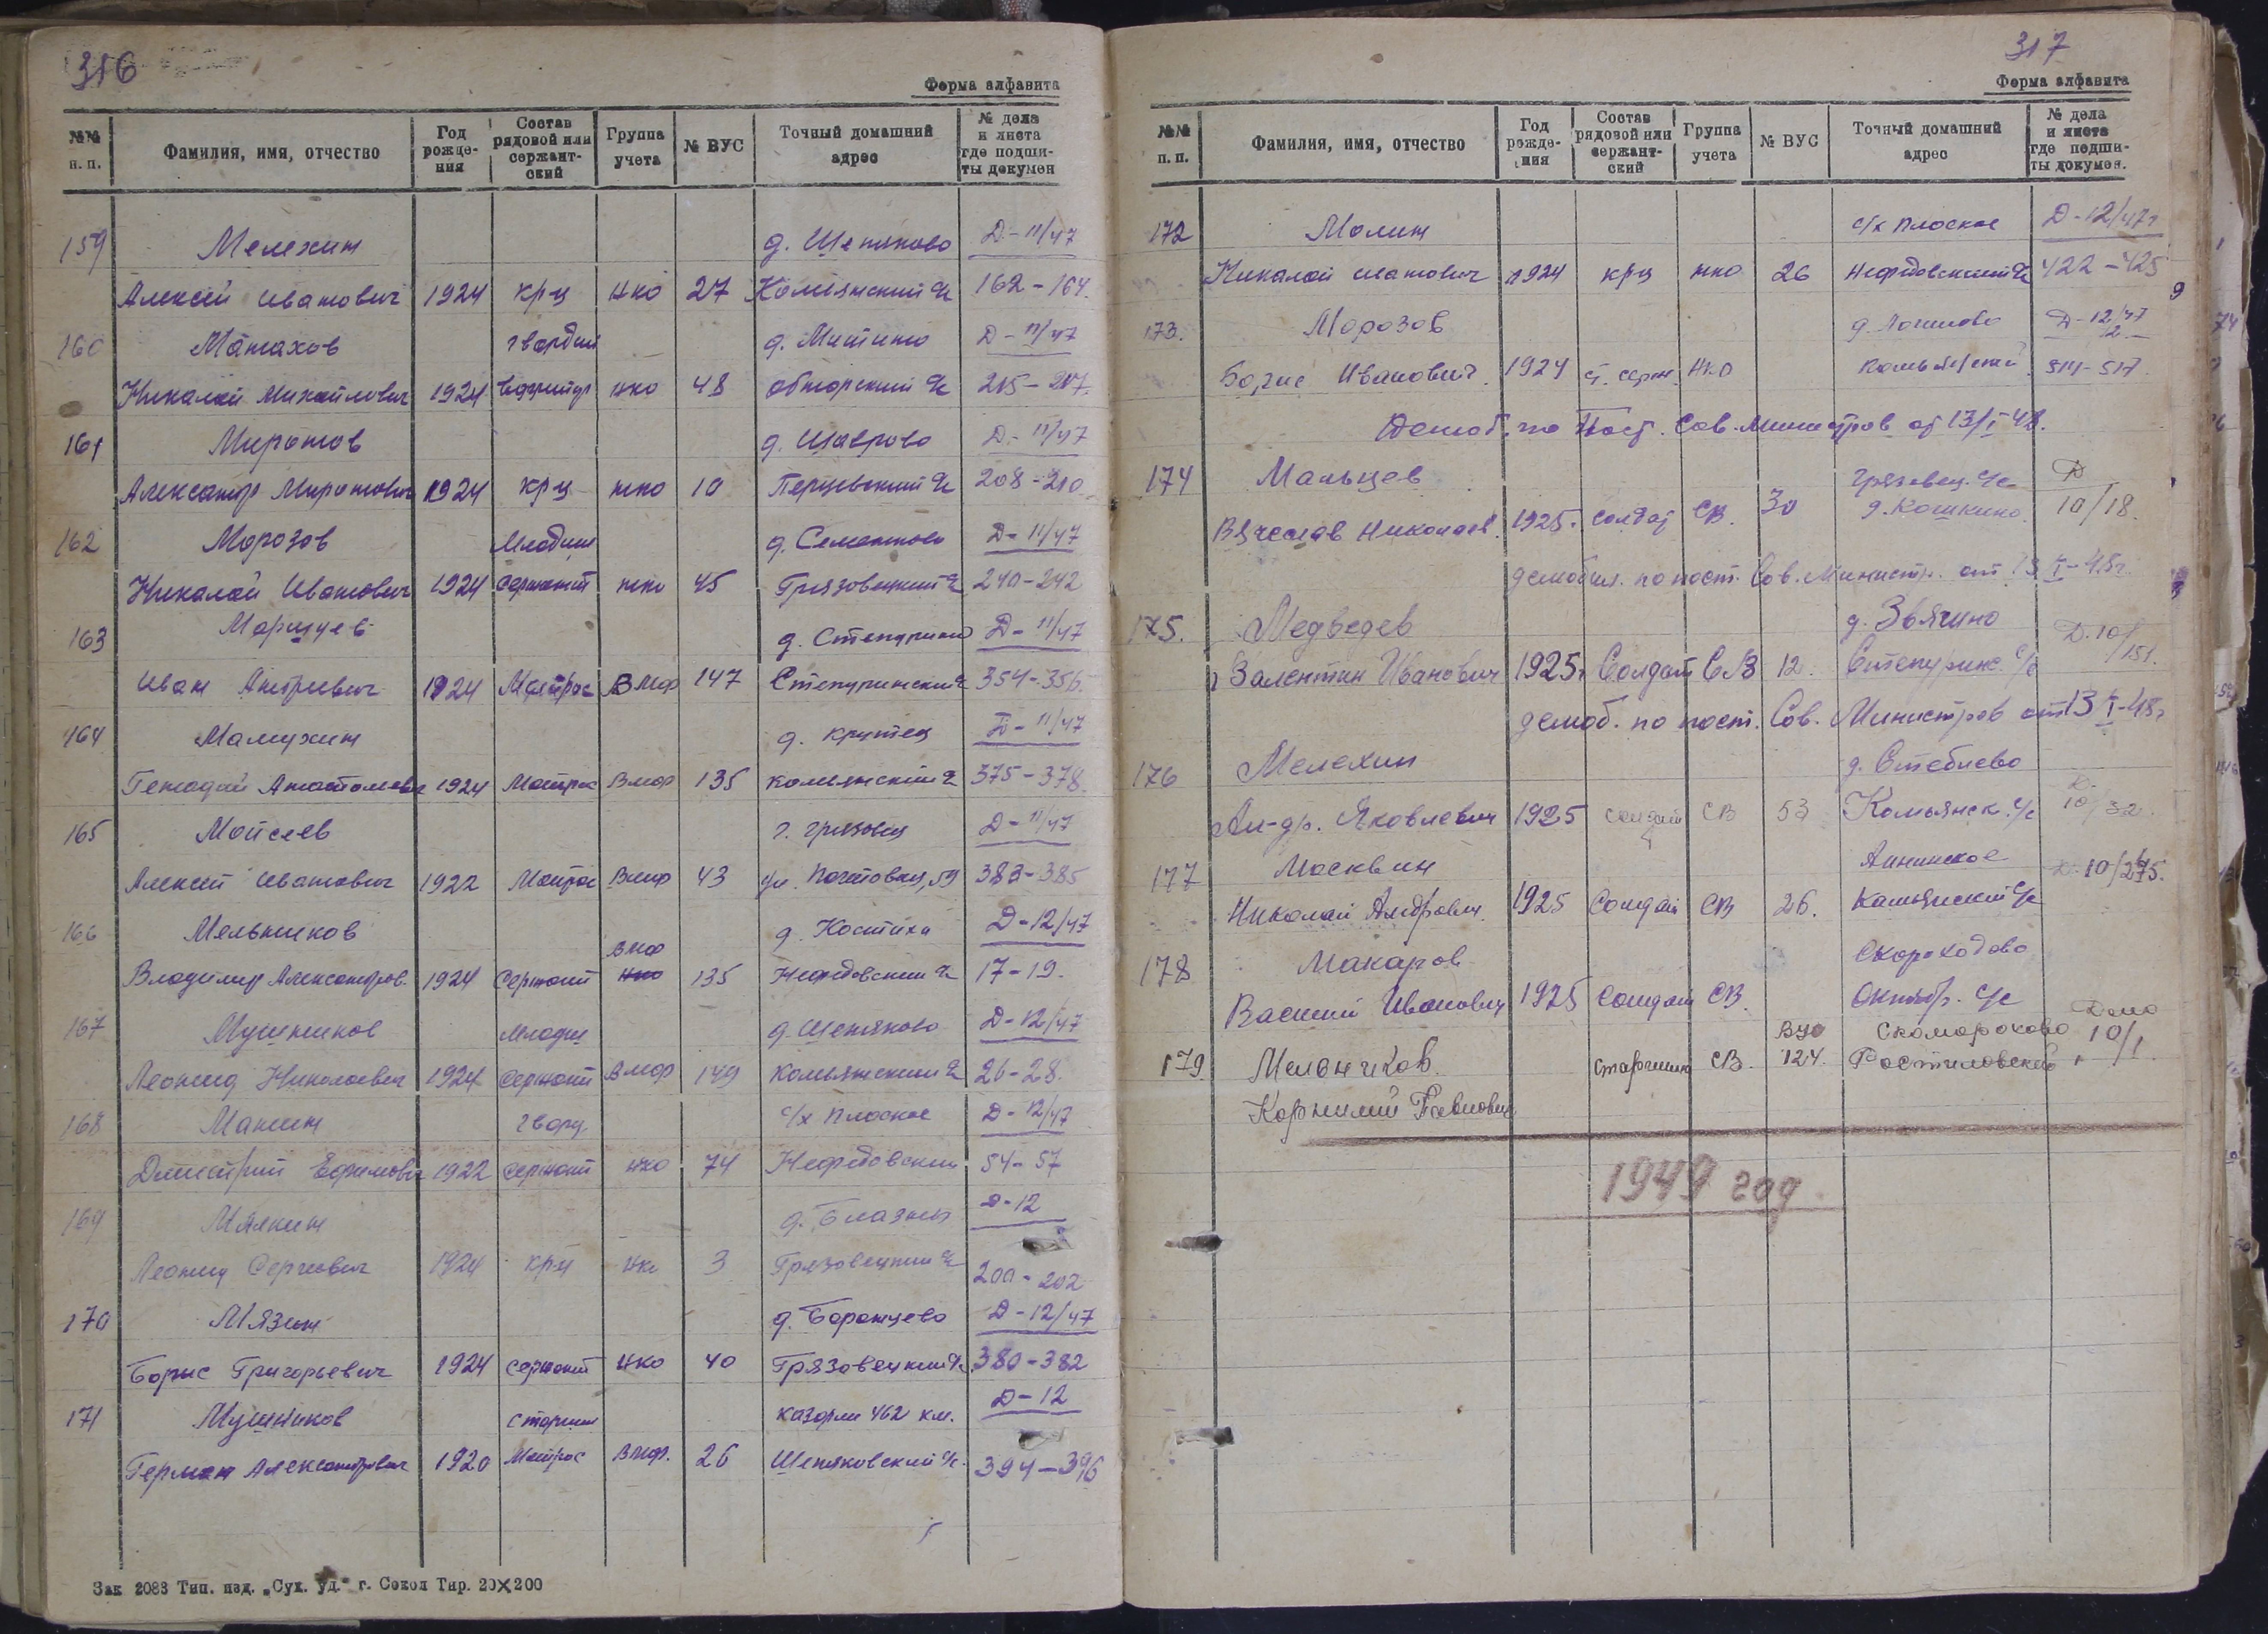 316
Форма алфавита
№№ н. п. Фамилия, имя, отчество Год рожде- ния Состав рядовой или сержант- ский Группа учета № ВУС Точный домашний адрес № дела и листа где подши- ты докумен
159 Мелехин д. Шепяково Д-11/47
Алексей Иванович 1924 крц нко 27 Комьянский с/с 162-164.
160 Матахов гвардии д. Митино Д-11/47
Николай Михайлович 1924 нко 48 обнорский с/с 215-217.
161 Миронов д. Шаврово Д-11/47
Александр Миронович 1924 крц нко 10 Перцевский с/с 208-210
162 Морозов Младши д. Семенково Д-11/47
Николай Иванович 1924 сержант нко 45 Грязовецкий с/с 240-242
163 д. Степурино Д-11/47
Иван 1924 Матрос Вмф 147 Степуринский с 354-356.
164 Мамухин д. крутец Д-11/47
Генадий Анатольевич 1924 Матрос Вмф 135 комьянский с 375-378
165 Мойсеев г. грязовец Д-11/47
Алексей Иванович 1922 Матрос Вмф 43 ул. Почтовая, 59 383-385
166 Мельников д. Костиха Д-12/47
Вмф
Владимир Александров. 1924 Сержант нко 135 Нефедовский с/с 17-19.
167 Мушников младш д. Шепяково Д-12/47
Леонид Николаевич 1924 Сержант Вмф 149 комьянский с 26-28.
168 Манин гвард. с/х Плоское Д-12/47
Дмитрий Ефимович 1922 сержант нко 74 Нефедовский 54-57
169 Мякин д. Блазны Д-12
Леонид Сергеевич 1924 крц нко 3 Грязовецкий с/с 200-202
170 Мязин д. Боронцево Д-12/47
Борис Григорьевич 1924 сержант нко 40 Грязовецкий с/с 380-382
171 Мушников старши казарма 462 км. Д-12
Герман Александрович 1920 Матрос Вмф. 26 Шепяковский с/с. 394-396
Зак 2083 Тип. изд. „Сух. уд." г. Сокол Тир. 20х200
317
Форма алфавита
№№ п. п. Фамилия, имя, отчество Год рожде- ния Состав рядовой или сержант- ский Группа учета № ВУС Точный домашний адрес № дела и листа где подши- ты докумен.
172 Молин с/х Плоское Д-12/47г
Николай 1924 крц нко 26 Нефедовский с/с 422-425
173. Морозов Д-12/47
2
Борис Иванович. 1924 ст. серж. НКО Комьянский 514-517
Демоб. по Пост. Сов. Министров от 13/I 48.
174 Мальцев Грязовец. с/с Д
Вячеслав Николаев. 1925. солдат СВ. 30 д. Кошкино. 10/18.
демобил. по пост. Сов. Министр. от 13 I-48г.
175. Медведев д. Звягино Д. 10/151.
Валентин Иванович 1925г Солдат СВ 12. Степуринс. с/с
демоб. по пост. Сов. Министров от 13 I-48г
176 Мелехин д. Стеблево Д.
Ал-др. Яковлевич 1925 солдат СВ 53 Комьянск. с/с 10/32.
177 Москвин Аннинское Д. 10/275.
Николай Андрович. 1925 Солдат СВ 26. Камьянский с/с
178 Макаров Скороходово
Василий Иванович 1925 Солдат СВ. Октябр. с/с
ВУС Скоморохово Дело
179 Мельников. старшина СВ. 124. Ростиловский 10/1
Корнилий Павлович
1949 год